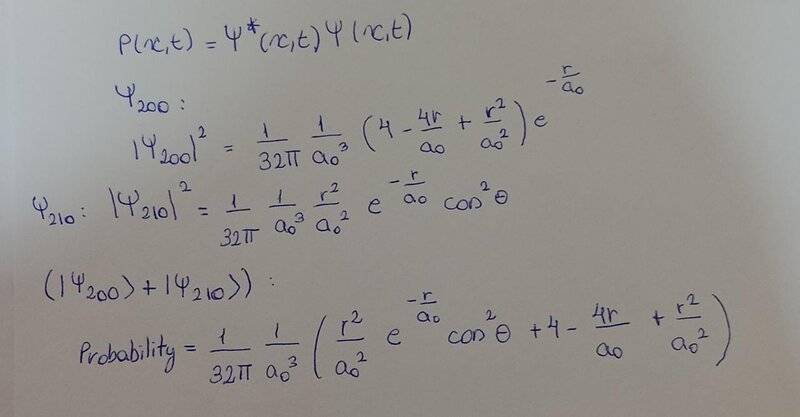 P(x,t) = Ψ*(x,t) Ψ(x,t)
Ψ₂₀₀ :
|Ψ₂₀₀|² = 1/32π 1/a₀³ (4 - 4r/a₀ + r²/a₀²) e^(-r/a₀)
Ψ₂₁₀ : |Ψ₂₁₀|² = 1/32π 1/a₀³ r²/a₀² e^(-r/a₀) cos²θ
(|Ψ₂₀₀⟩ + |Ψ₂₁₀⟩) :
Probability = 1/32π 1/a₀³ (r²/a₀² e^(-r/a₀) cos²θ + 4 - 4r/a₀ + r²/a₀²)